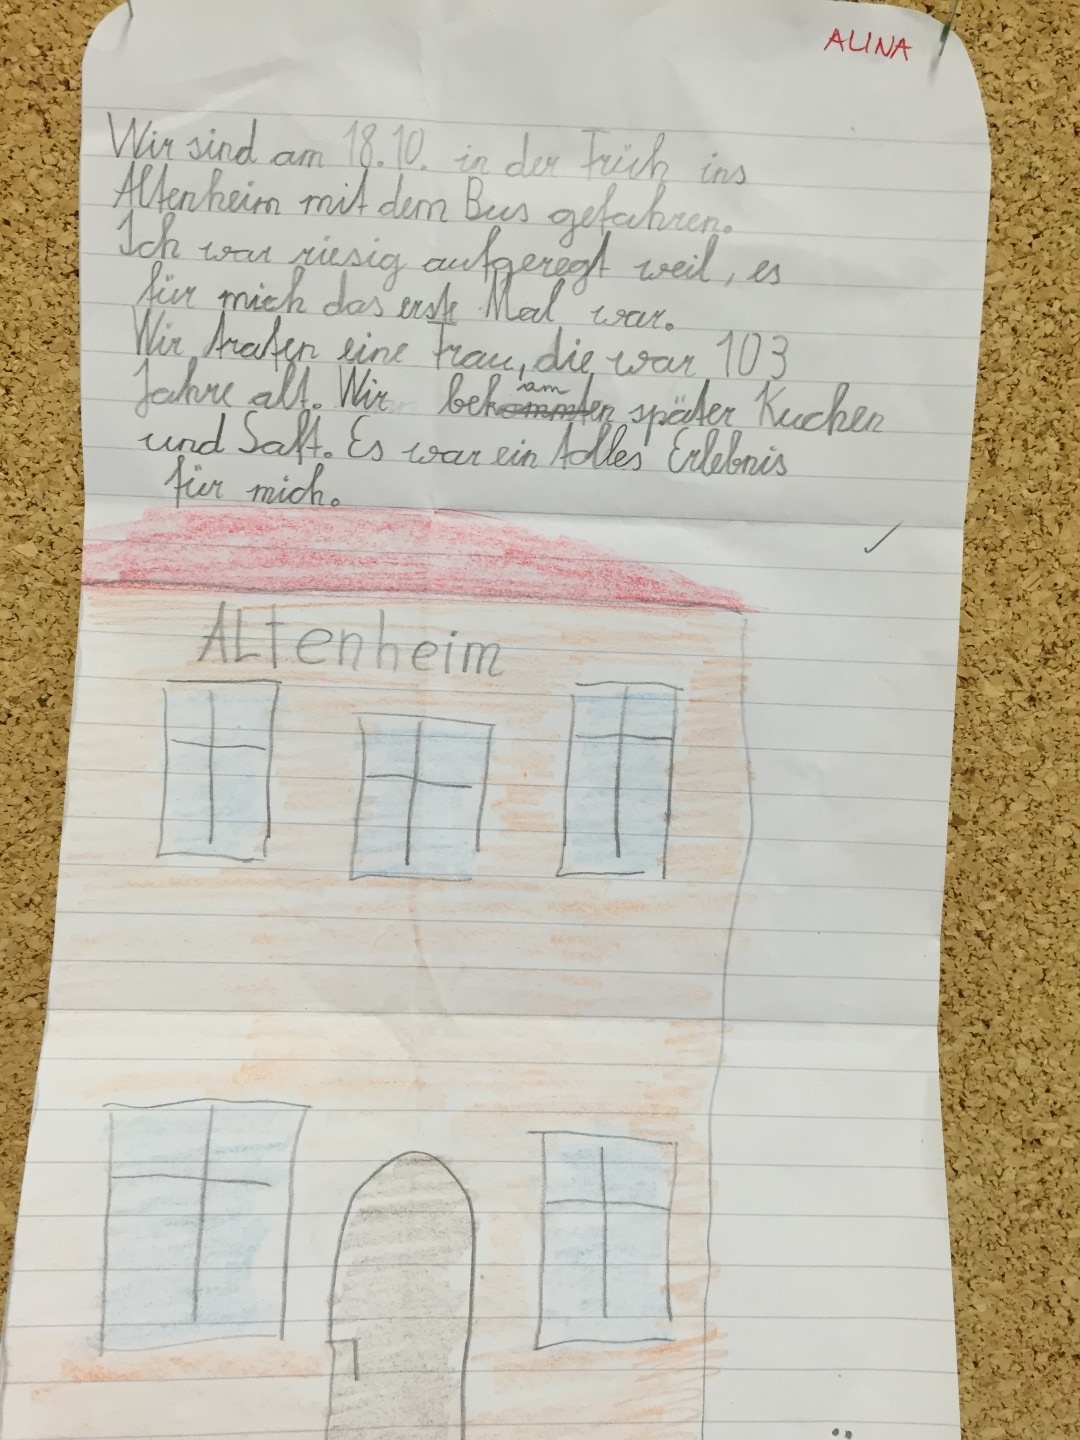 ALINA
Wir sind am 18.10. in der Früh ins
Altenheim mit dem Bus gefahren.
Ich war riesig aufgeregt weil, es
für mich das erste Mal war.
Wir trafen eine Frau, die war 103
Jahre alt. Wir bekamen später Kuchen
und Saft. Es war ein tolles Erlebnis
für mich.
ALtenheim